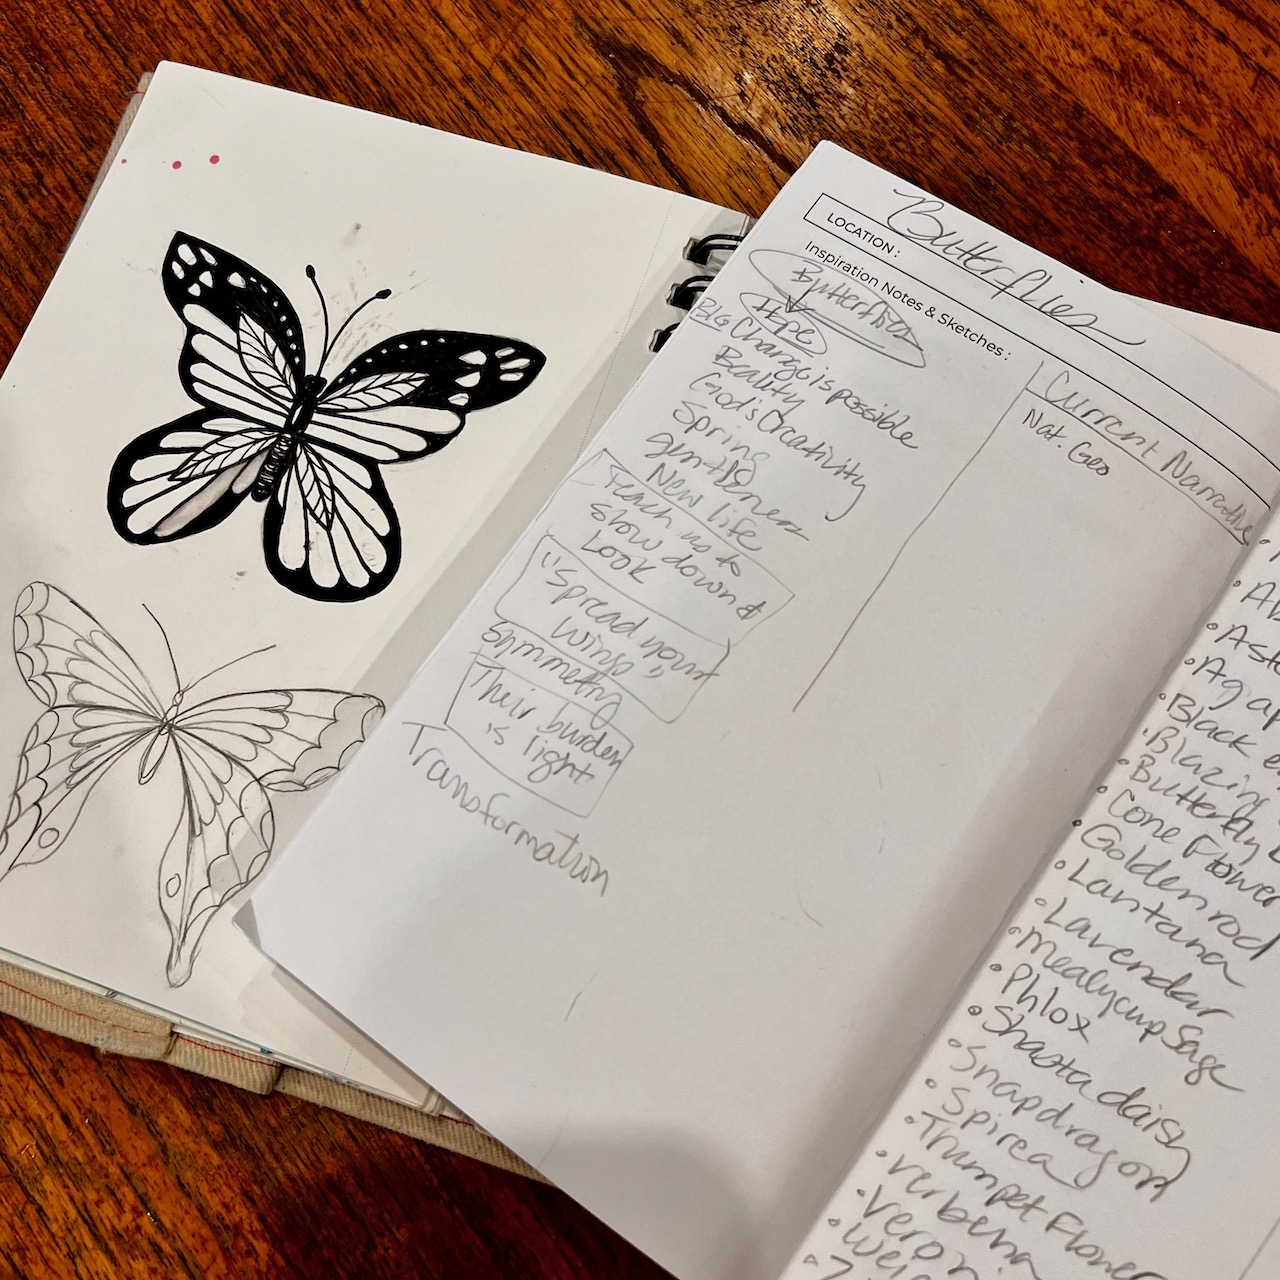 LOCATION: Butterflies
Inspiration Notes & Sketches:
Butterflies
Hope
BIG Change is possible
Beauty
God's Creativity
Spring
gentleness
New life
Teach us to
slow down &
LOOK
"Spread your
wings"
Symmetry
Their burden
is light
Transformation
Current Narrative
Nat. Geo
• Aste
• Agap
• Black e
• Blazing
• Butterfly
• Cone Flower
• Goldenrod
• Lantana
• Lavendar
• Mealycup Sage
• Phlox
• Shasta daisy
• Snapdragon
• Spirea
• Trumpet Flower
• Verbena
• Veron
• Wei